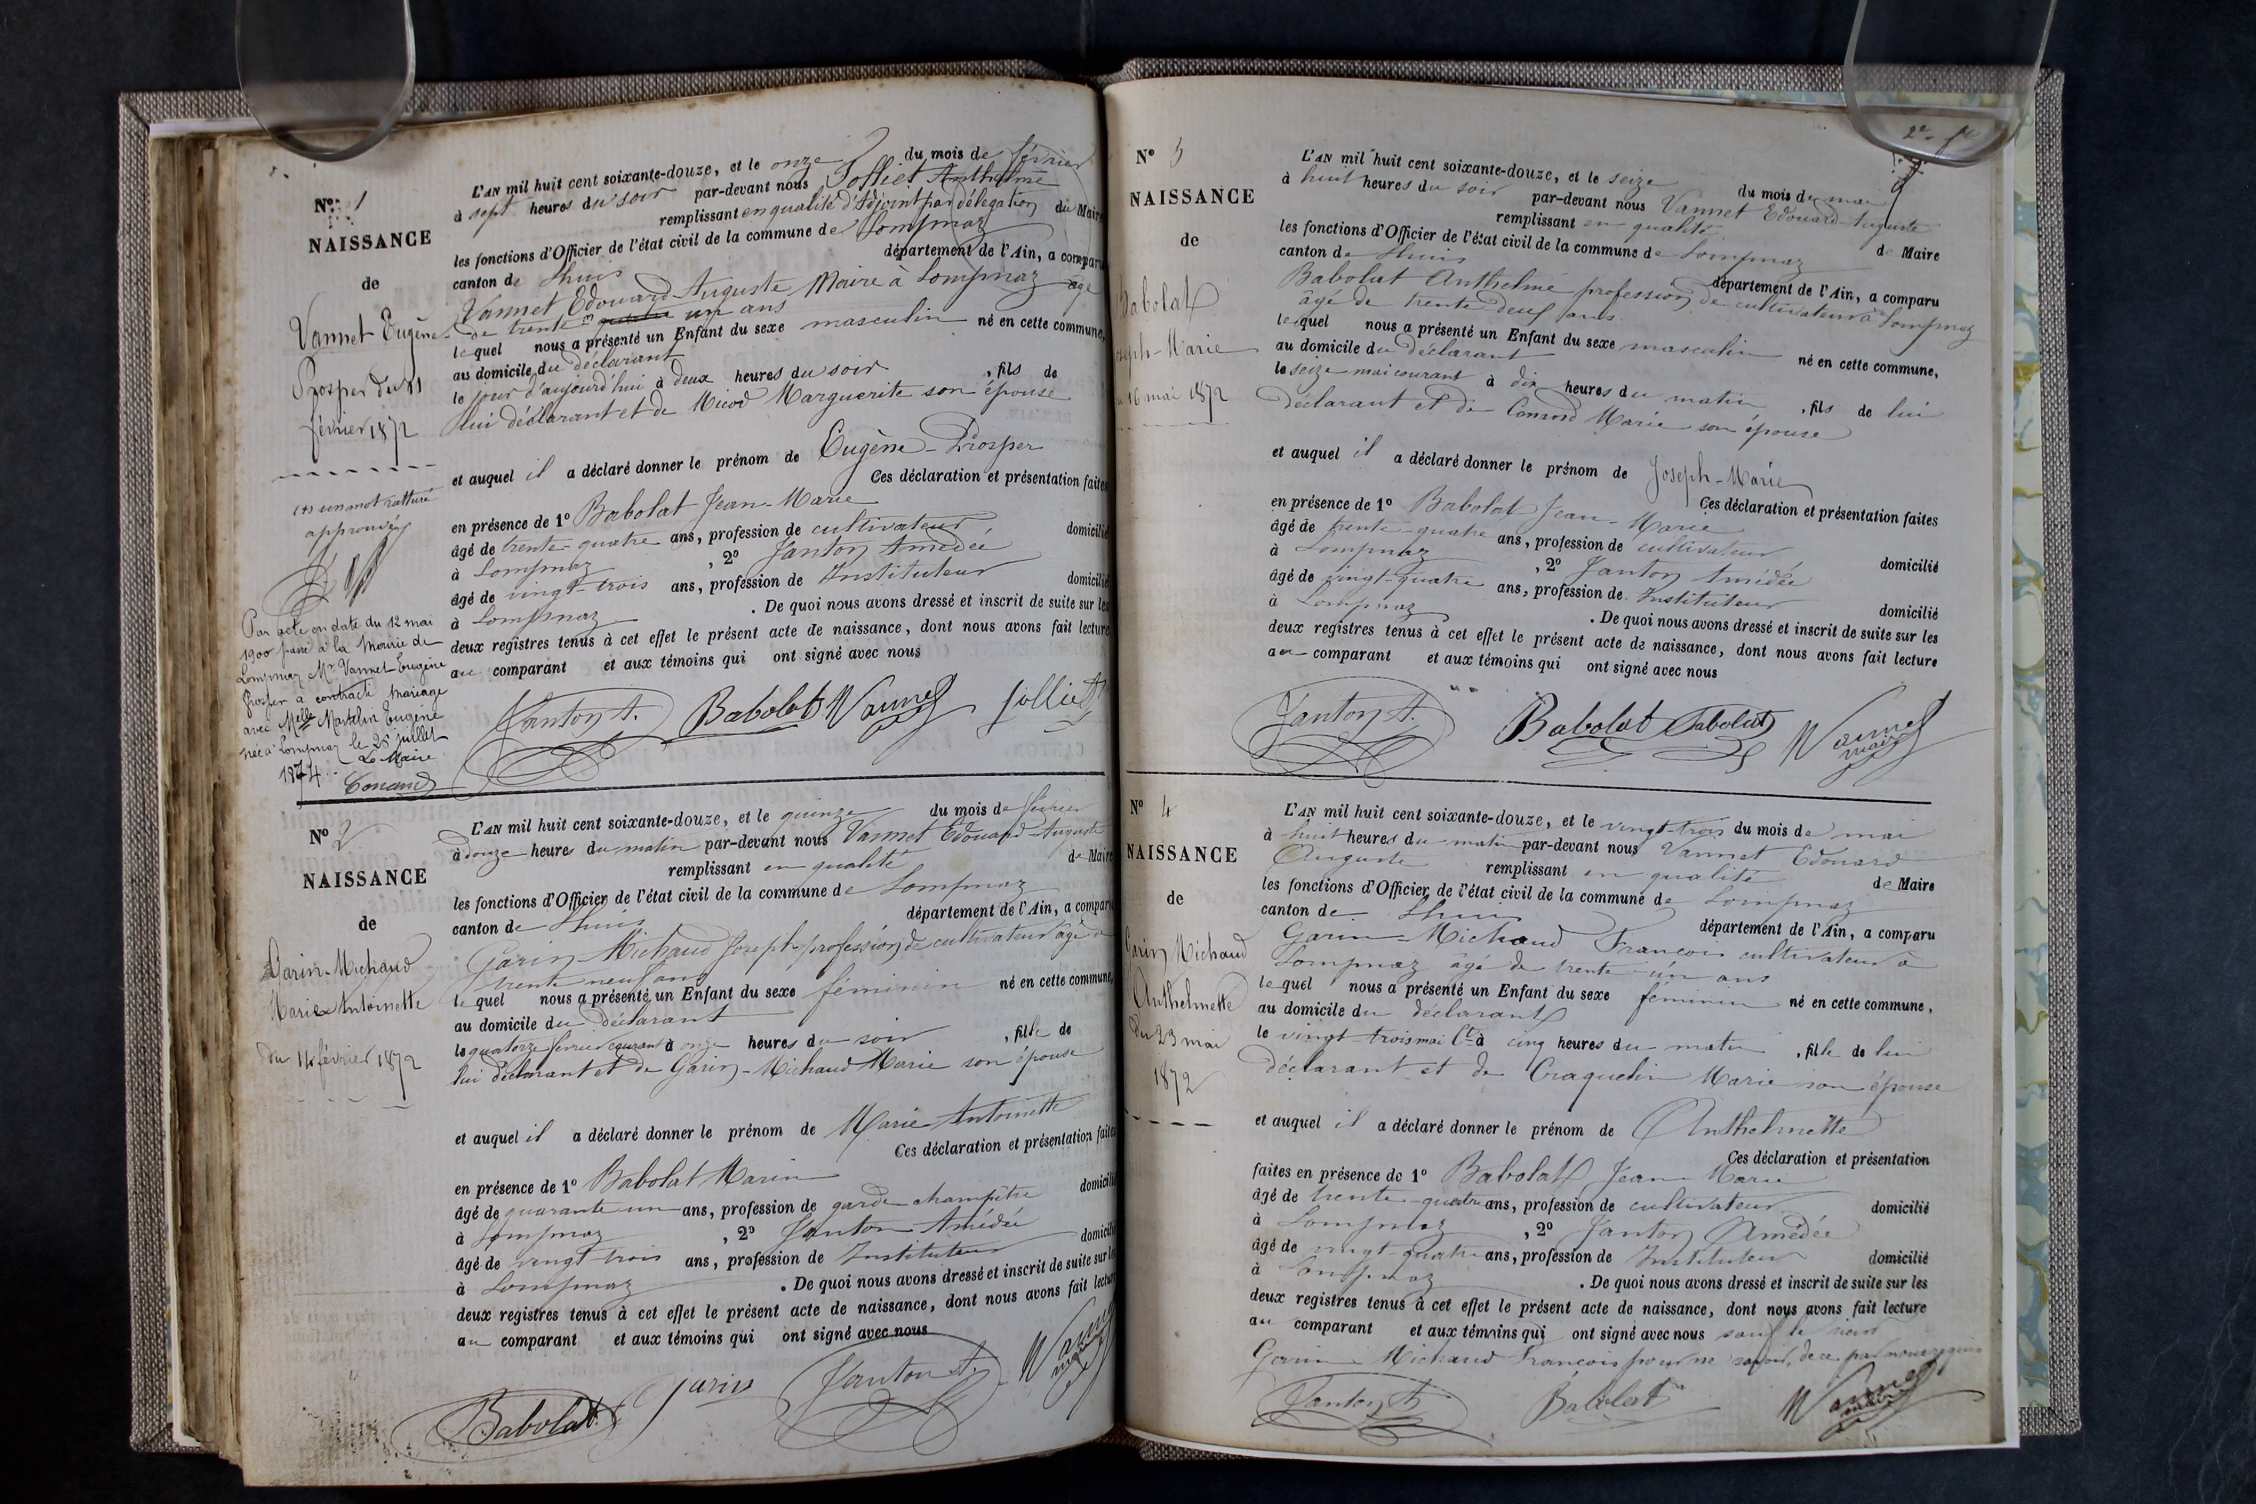 N° 1
NAISSANCE
de
Vannet Eugène
Prosper du 11
février 1872
(1) un mot raturé
approuvé
Par acte en date du 12 mai
1900 passé à la Mairie de
Lompnaz Mr Vannet Eugène
Prosper a contracté mariage
avec Melle Martelin Eugénie
née à Lompnaz le 25 juillet
1874. Le Maire
L'AN mil huit cent soixante-douze, et le onze du mois de février
à sept heures du soir par-devant nous Jolliet Anthelme
remplissant en qualité d'Adjoint par délégation du Maire
les fonctions d'Officier de l'état civil de la commune de Lompnaz
canton de Lhuis département de l'Ain, a comparu
Vannet Edouard Auguste, Maire à Lompnaz âgé
de trente un ans
lequel nous a présenté un Enfant du sexe masculin né en cette commune,
au domicile du déclarant
le jour d'aujourd'hui à deux heures du soir , fils de
lui déclarant et de Micod Marguerite son épouse
et auquel il a déclaré donner le prénom de Eugène-Prosper
Ces déclaration et présentation faites
en présence de 1° Babolat Jean-Marie
âgé de trente-quatre ans, profession de cultivateur, domicilié
à Lompnaz , 2° Janton Amédée
âgé de vingt-trois ans, profession de Instituteur domicilié
à Lompnaz . De quoi nous avons dressé et inscrit de suite sur les
deux registres tenus à cet effet le présent acte de naissance, dont nous avons fait lecture
au comparant et aux témoins qui ont signé avec nous
Janton A. Babolat Vannet Jolliet
N° 2
NAISSANCE
de
Garin-Michaud
Marie Antoinette
du 14 février 1872
L'AN mil huit cent soixante-douze, et le quinze du mois de février
à douze heures du matin par-devant nous Vannet Edouard-Auguste
remplissant en qualité de Maire
les fonctions d'Officier de l'état civil de la commune de Lompnaz
canton de Lhuis département de l'Ain, a comparu
Garin-Michaud Joseph profession de cultivateur âgé de
trente neuf ans
lequel nous a présenté un Enfant du sexe féminin né en cette commune,
au domicile du déclarant
le quatorze février courant à onze heures du soir , fille de
lui déclarant et de Garin-Michaud Marie son épouse
et auquel il a déclaré donner le prénom de Marie Antoinette
Ces déclaration et présentation faites
en présence de 1° Babolat Marin
âgé de quarante un ans, profession de garde-champêtre domicilié
à Lompnaz , 2° Janton Amédée
âgé de vingt-trois ans, profession de Instituteur domicilié
à Lompnaz . De quoi nous avons dressé et inscrit de suite sur les
deux registres tenus à cet effet le présent acte de naissance, dont nous avons fait lecture
au comparant et aux témoins qui ont signé avec nous
Babolat Garin Janton A. Vannet maire
N° 3
NAISSANCE
de
Babolat
Joseph-Marie
du 16 mai 1872
L'AN mil huit cent soixante-douze, et le seize du mois de mai
à huit heures du soir par-devant nous Vannet Edouard-Auguste
remplissant en qualité de Maire
les fonctions d'Officier de l'état civil de la commune de Lompnaz
canton de Lhuis département de l'Ain, a comparu
Babolat Anthelme profession de cultivateur à Lompnaz
âgé de trente deux ans
lequel nous a présenté un Enfant du sexe masculin né en cette commune,
au domicile du déclarant
le seize mai courant à dix heures du matin , fils de lui
déclarant et de Marie son épouse
et auquel il a déclaré donner le prénom de Joseph-Marie
Ces déclaration et présentation faites
en présence de 1° Babolat Jean-Marie
âgé de trente-quatre ans, profession de cultivateur domicilié
à Lompnaz , 2° Janton Amédée
âgé de vingt-quatre ans, profession de Instituteur domicilié
à Lompnaz . De quoi nous avons dressé et inscrit de suite sur les
deux registres tenus à cet effet le présent acte de naissance, dont nous avons fait lecture
au comparant et aux témoins qui ont signé avec nous
Janton A. Babolat Babolat Vannet maire
N° 4
NAISSANCE
de
Garin Michaud
Anthelmette
du 23 mai
1872
L'AN mil huit cent soixante-douze, et le vingt-trois du mois de mai
à huit heures du matin par-devant nous Vannet Edouard
Auguste remplissant en qualité de Maire
les fonctions d'Officier de l'état civil de la commune de Lompnaz
canton de Lhuis département de l'Ain, a comparu
Garin-Michaud François cultivateur à
Lompnaz âgé de trente-un ans
lequel nous a présenté un Enfant du sexe féminin né en cette commune,
au domicile du déclarant
le vingt trois mai Ct à cinq heures du matin , fille de lui
déclarant et de Craquelin Marie son épouse
et auquel il a déclaré donner le prénom de Anthelmette
Ces déclaration et présentation
faites en présence de 1° Babolat Jean Marie
âgé de trente-quatre ans, profession de cultivateur domicilié
à Lompnaz , 2° Janton Amédée
âgé de vingt-quatre ans, profession de Instituteur domicilié
à Lompnaz . De quoi nous avons dressé et inscrit de suite sur les
deux registres tenus à cet effet le présent acte de naissance, dont nous avons fait lecture
au comparant et aux témoins qui ont signé avec nous sauf le sieur
Garin Michaud François pour ne savoir, de ce par nous requis
Janton A. Babolat Vannet maire